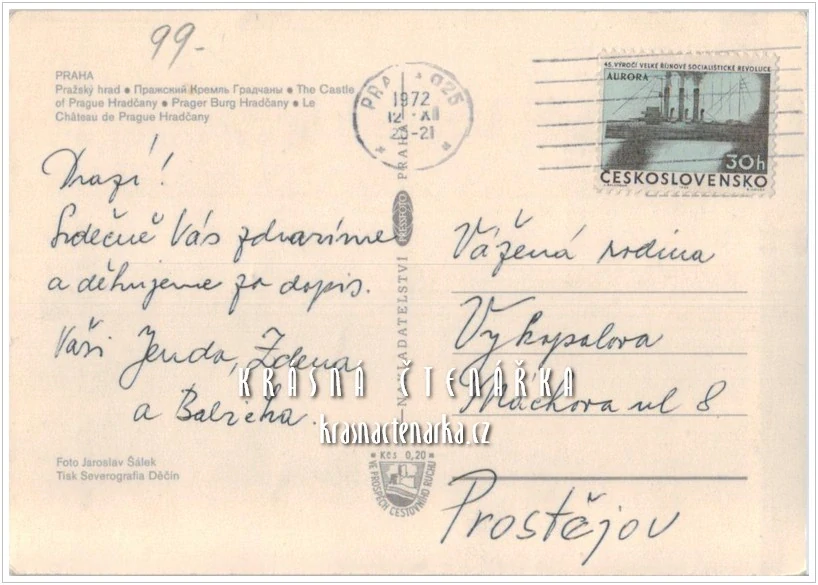 99.-
PRAHA
Pražský hrad ● Пражский Кремль Градчаны ● The Castle
of Prague Hradčany ● Prager Burg Hradčany ● Le
Château de Prague Hradčany
Drazí!
Srdečně Vás zdravíme
a děkujeme za dopis.
Vaši Jenda, Zdena
a
Foto Jaroslav Šálek
Tisk Severografia Děčín
PRAHA 025
1972
XII
-21
NAKLADATELSTVÍ PRESSFOTO PRAHA
Kčs 0,20
VE PROSPĚCH CESTOVNÍHO RUCHU
45. VÝROČÍ VELKÉ ŘÍJNOVÉ SOCIALISTICKÉ REVOLUCE
AURORA
30h
ČESKOSLOVENSKO
Vážená rodina
Vykopalova
Máchova ul 8
Prostějov
KRÁSNÁ ČTENÁŘKA
krasnactenarka.cz